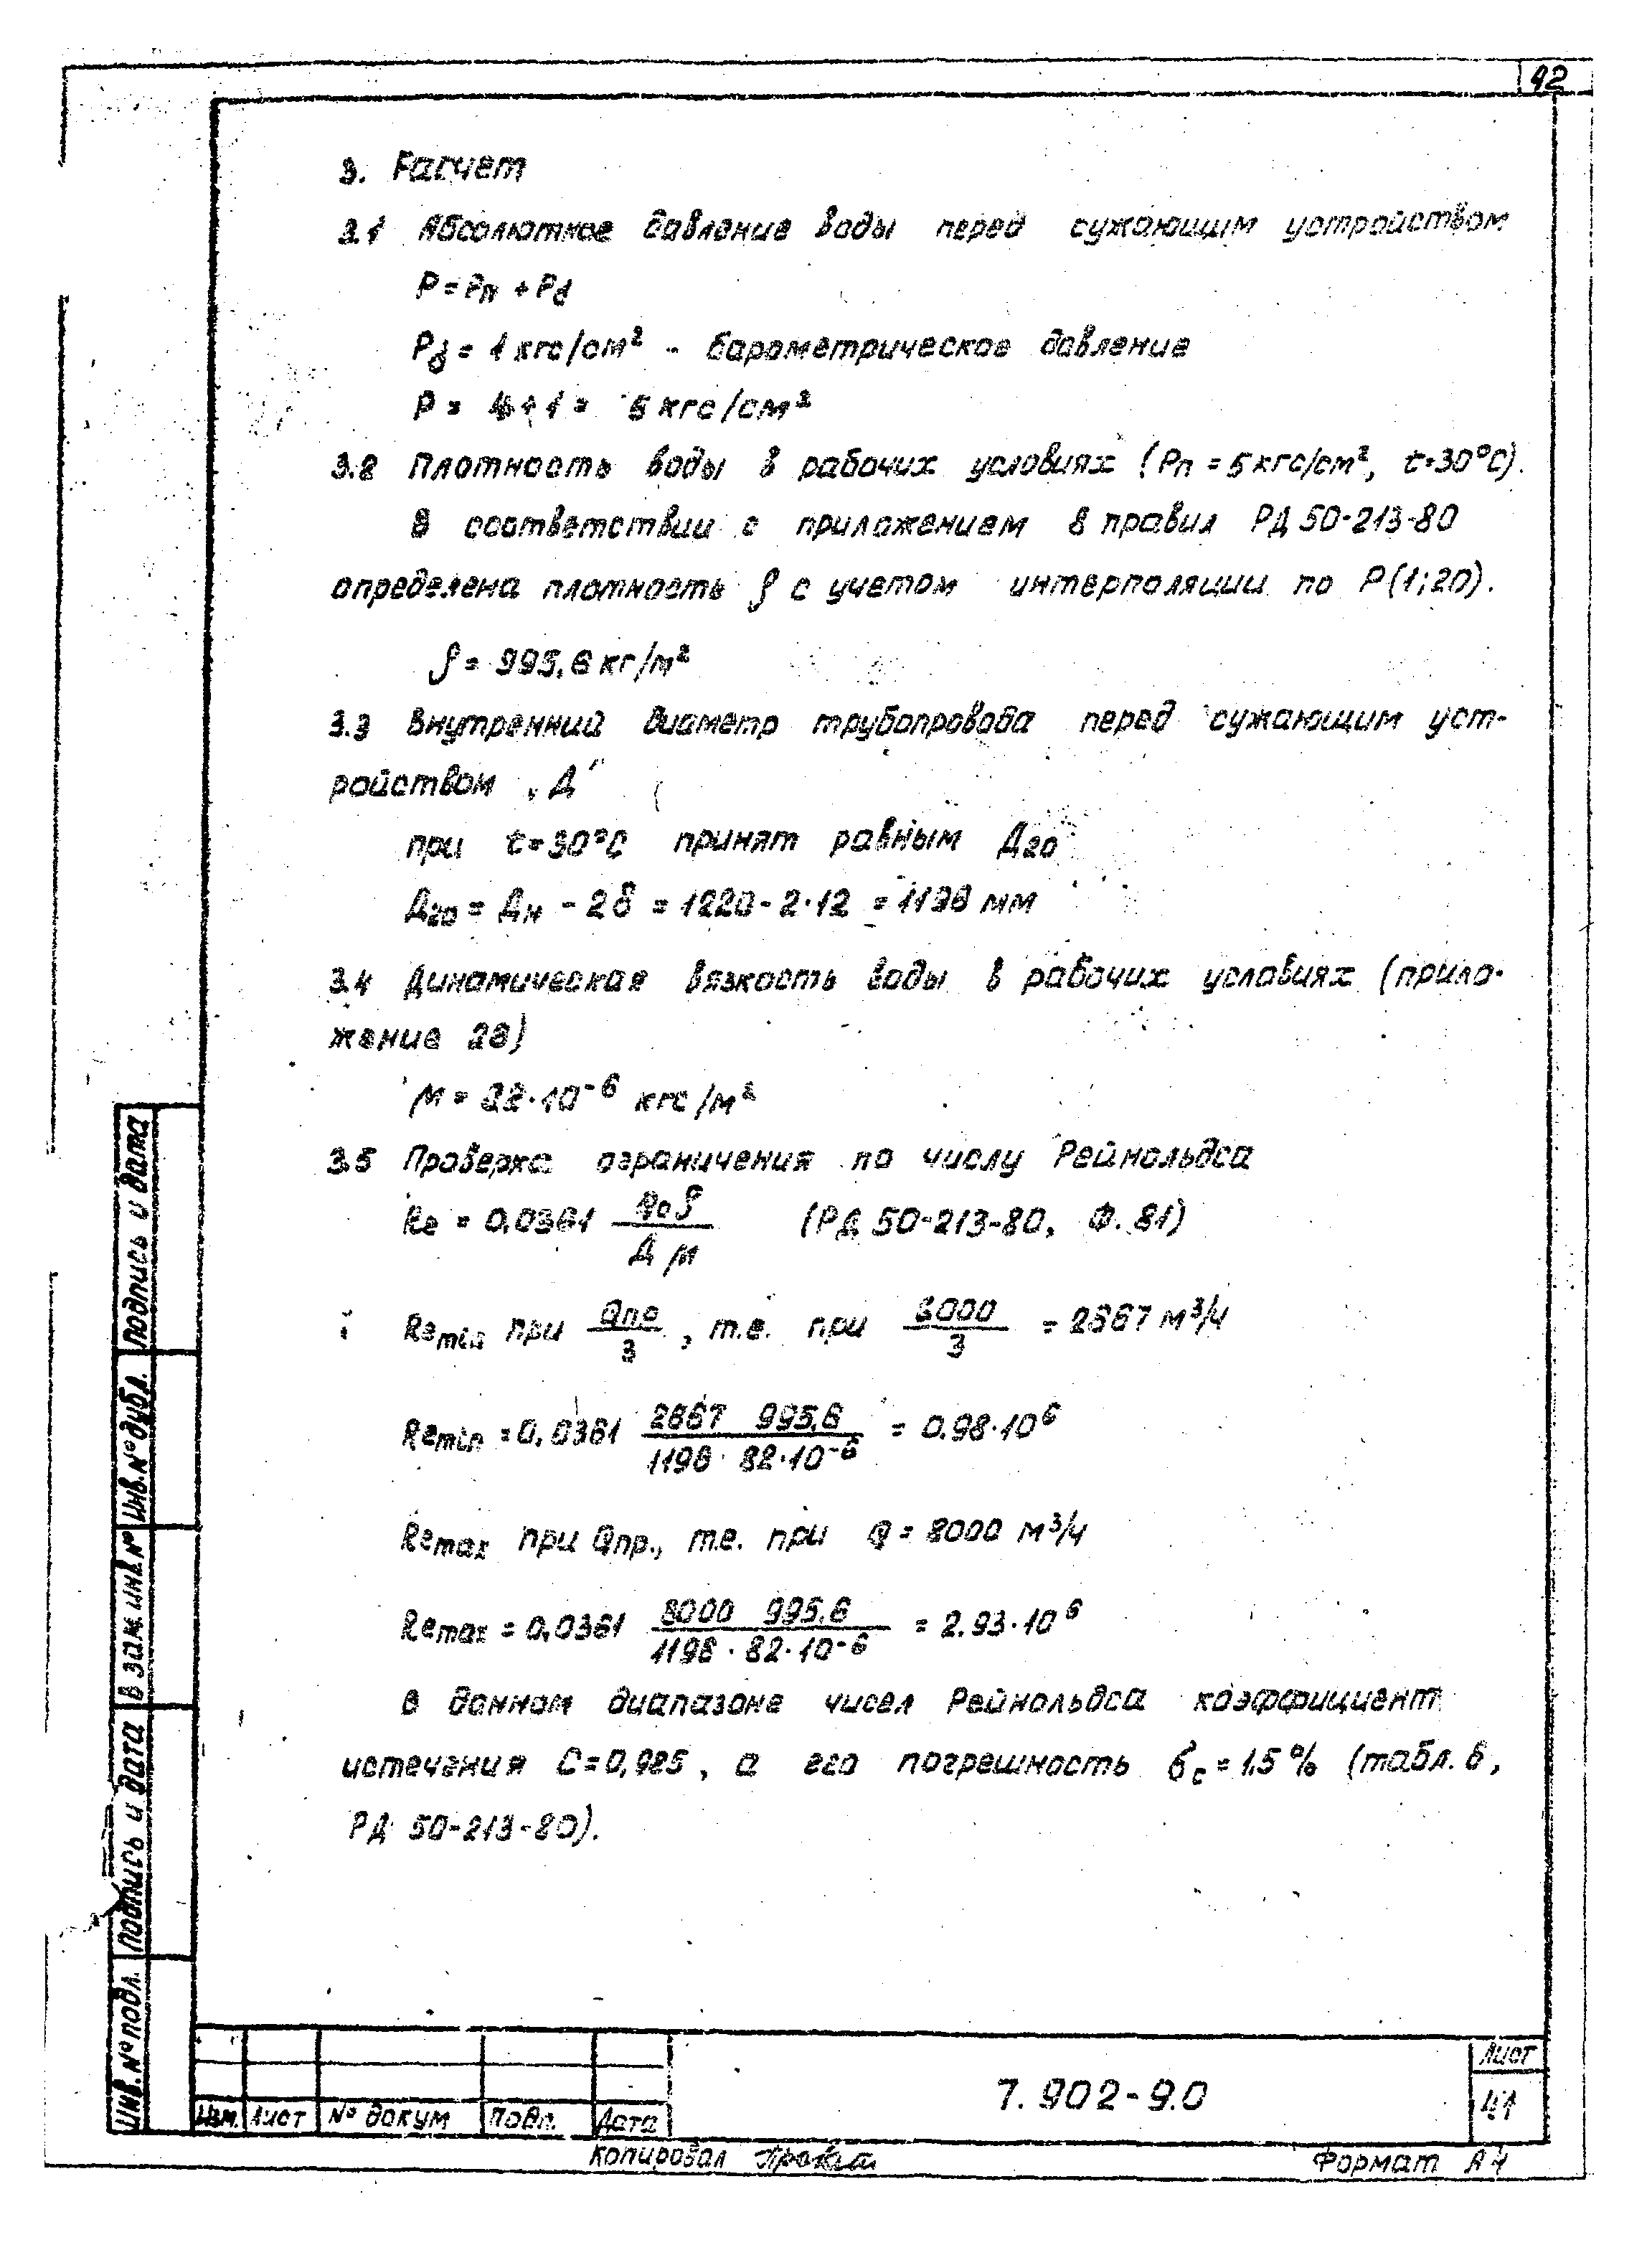 42
3. Расчет
3.1 Абсолютное давление воды перед сужающим устройством
P = Pп + Pб
Pб = 1 кгс/см² - барометрическое давление
P = 4+1 = 5 кгс/см²
3.2 Плотность воды в рабочих условиях (Pп = 5 кгс/см², t=30°C).
В соответствии с приложением 8 правил РД 50-213-80
определена плотность ρ с учетом интерполяции по P(1;20).
ρ = 995,6 кг/м²
3.3 Внутренний диаметр трубопровода перед сужающим уст-
ройством „Д"
при t=30°C принят равным Д20
Д20 = Дн - 2δ = 1220 - 2·12 = 1196 мм
3.4 Динамическая вязкость воды в рабочих условиях (прило-
жение 28)
μ = 82·10⁻⁶ кгс/м²
3.5 Проверка ограничения по числу Рейнольдса
Re = 0,0361 Qо ρ / Д μ (РД 50-213-80, Ф. 81)
Remin при Qпр / 3, т.е. при 8000 / 3 = 2667 м³/ч
Remin = 0,0361 2667 995,6 / 1196 · 82·10⁻⁶ = 0.98·10⁶
Remax при Qпр., т.е. при Q = 8000 м³/ч
Remax = 0,0361 8000 995,6 / 1196 · 82·10⁻⁶ = 2.93·10⁶
В данном диапазоне чисел Рейнольдса коэффициент
истечения C=0,985, а его погрешность бc = 1.5% (табл. 6,
РД 50-213-80).
Подпись и дата
Инв.№дубл.
Взам.инв.№
Подпись и дата
Инв.№подл.
Изм. Лист № докум Подп. Дата
7.902-9.0
Лист
41
Копировал
Формат А4